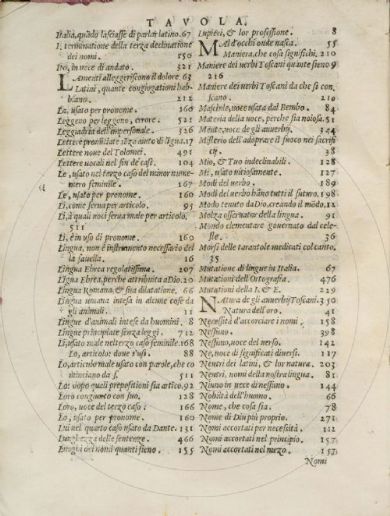 TAVOLA.
Italia, quādo lasciasse di parlar latino. 67
I, terminatione della terza declinatione
dei nomi. 150
Ivi, in vece di andato. 321
LAmenti alleggeriscono il dolore 63
Latini, quante congiugationi hab
biano. 212
La, usato per pronome. 160
Leggeno per leggono, errore. 521
Leggiadria dell'impersonale. 326
Lettere pronūtiate sēza aiuto di ligua. 17
Lettere nove del Tolomei. 491
Lettere vocali nel fin de' casi. 104
Le, usato nel tezzo caso del minor nume-
ro mero feminile. 167
Le, usato per pronome. 160
Li, come serva per articolo. 93
Li, à quali noci serva male per articolo.
511
Li, è in uso di pronome. 160
Lingua, non è instrumento necessario del
la favella. 16
Lingua Ebrea regolatissima. 207
Ligua Ebrea, perche attribuita a Dio. 20
Lingua Romana, & sua dilatatione. 66
Lingua umana intesa in alcune cose da
gli animali. 11
Lingue d'animali intese da huomini. 8
Lingue principiate senza leggi. 712
Li, usato male nel terzo caso feminile. 168
Lo, articolo: dove s'usi. 88
Lo, articolo male usato con parole, che co
minciano da ſ. 511
Lo: dopo quali prepositioni sia artico. 92
Loro congiunto con suo. 128
Loro, voce del terzo caso. 166
Lo, usato per pronome. 160
Lui nel quarto caso usato da Dante. 131
Lunghezza delle sentenze. 466
Luoghi dei nomi quanti sieno. 155
Lupieri, & lor professione. 8
MAl d'occhi onde nasca. 55
Maniera, che cosa significhi. 210
Maniere dei verbi Toscani quāte sieno 9
216
Maniere dei verbi Toscani da che si con
scano. 210
Maschile, voce usata dal Bembo. 84
Materia della voce, perche sia noiosa. 51
Mente, voce de gli avverbij. 344
Misterio dell'adoprare il fuoco nei sacrifi
cij. 38
Mio, & Tuo indeclinabili. 128
Mi, usato vitiosamente. 127
Modi del verbo. 189
Modi del verbo hāno tutti il futuro. 198
Modo tenuto da Dio, creando il mōdo. 12
Molza osservator della lingua. 91
Mondo elementare governato dal cele-
ste. 36
Morsi delle tarantole medicati col canto.
35
Mutatione di lingue in Italia. 67
Mutationi dell'Ortografia. 476
Mutationi della I. & E. 219
NAtura de gli avverbi Toscani. 350
Natura dell'oro. 41
Necessità d'accorciare i nomi. 158
Nessuno. 398
Nessuno, voce del verso. 142
Ne, voce di significati diversi. 117
Neutri dei latini, & lor nature. 203
Neutri, nomi della nostra lingua. 81
Niuno in vece di nessuno. 144
Nobiltà dell'huomo. 66
Nome, che cosa sia. 78
Nome di Diu piu proprio. 271
Nomi accortati per necessità. 112
Nomi accortati nel principio. 157
Nomi accortati nel mezo. 157
Nomi